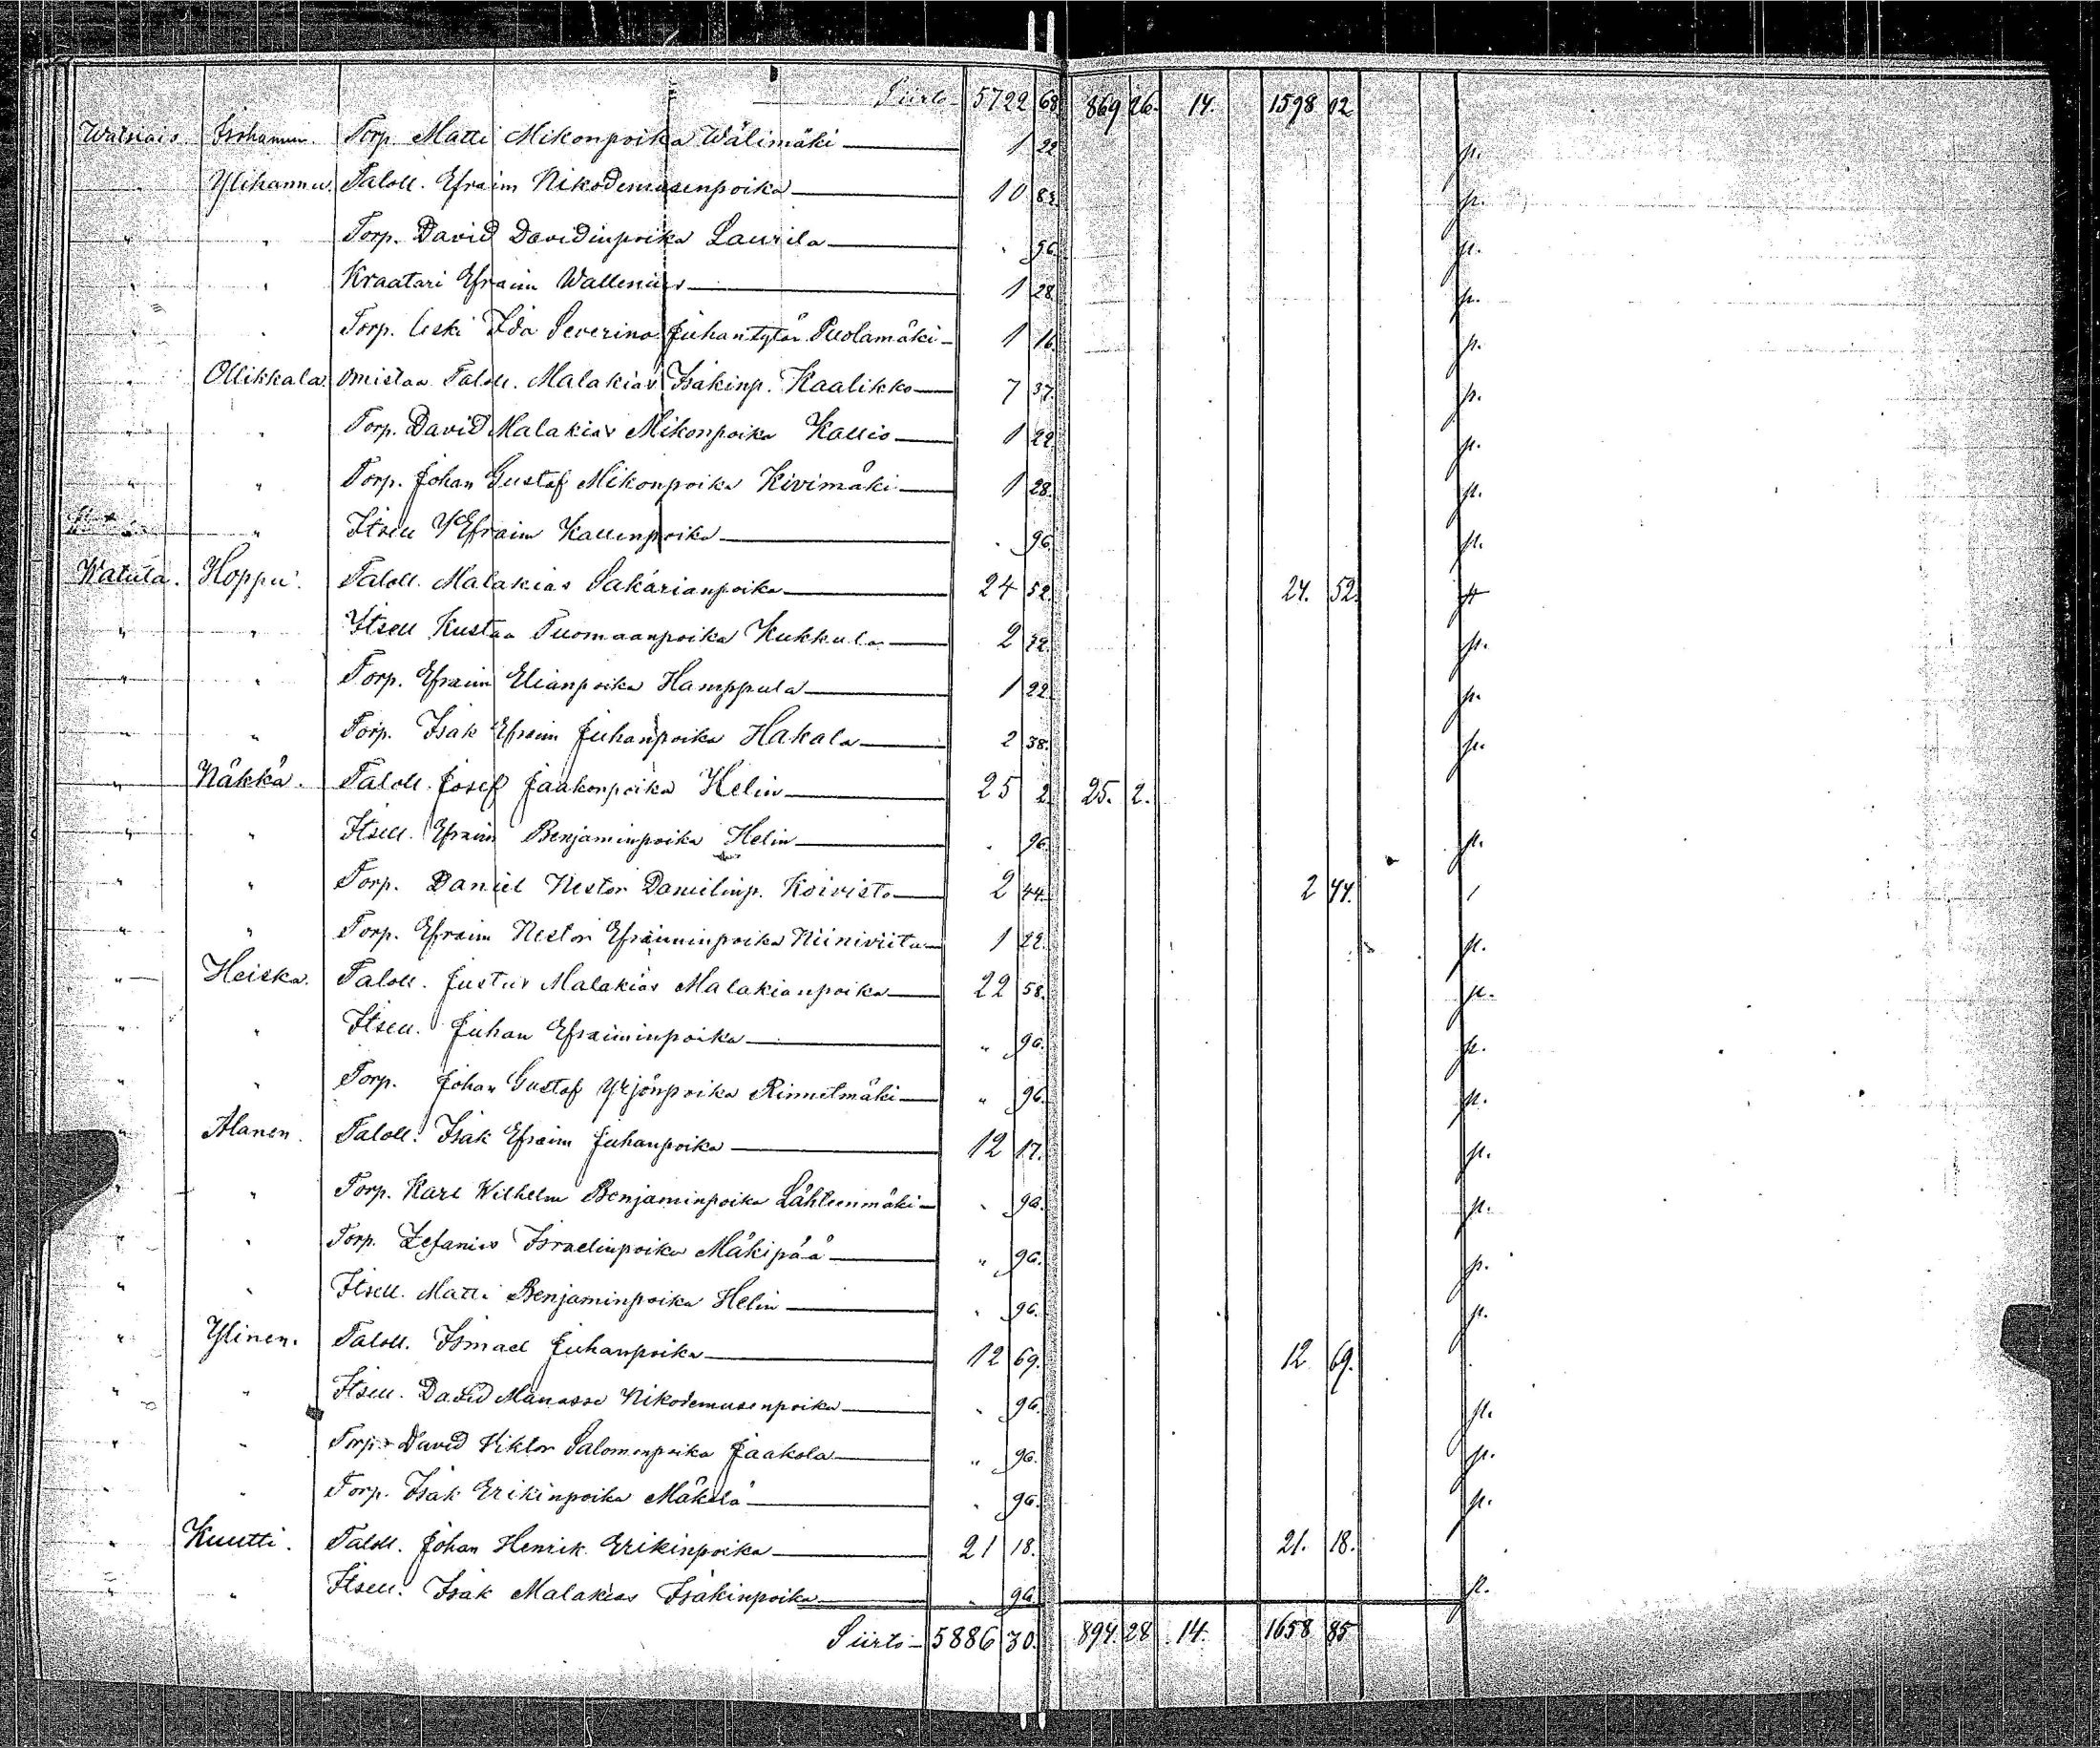 Siirto 5722 68 869 26. 14. 1598 02
Torp. Matti Mikonpoika Wälimäki 1 22 p.
Ylihannu. Taloll. Efraim Nikodemusenpoika 10 82. p.
" " Torp. David Davidinpoika Laurila . 96. p.
" " Kraatari Efraim Wallenius 1 28. p.
" " Torp. leski Ida Severina Juhantytär Puolamäki 1 16. p.
" Ollikkala Omistaa Taloll. Malakias Isakinp. Kaalikko 7 37. p.
" " Torp. David Malakias Mikonpoika Kallio 1 22. p.
" " Torp. Johan Gustaf Mikonpoika Kivimäki 1 28. p.
" Itsell Efraim Kallenpoika . 96. p.
Watula. Hoppu. Taloll. Malakias Sakarianpoika 24 52. 24. 52.
" " Itsell Kustaa Tuomaanpoika Kukkula 2 p.
" " Torp. Efraim Elianpoika Hamppula 1 22. p.
" " Torp. Isak Efraim Juhanpoika Hakala 2 38. p.
" Näkkä. Taloll. Josef Jaakonpoika Helin 25 2. 25. 2.
" " Itsell. Efraim Benjaminpoika Helin . 96. p.
" " Torp. Daniel Nestor Danielinp. Koivisto 2 44. 2 44.
" " Torp. Efraim Nestor Efraiminpoika Niiniviita 1 22. p.
" Heiska. Taloll. Justus Malakias Malakianpoika 22 58. p.
" " Itsell. Juhan Efraiminpoika " 96. p.
" " Torp. Johan Gustaf Yrjönpoika Rinnetmäki " 96. p.
" Alanen. Taloll. Isak Efraim Juhanpoika 12 17. p.
" " Torp. Karl Wilhelm Benjaminpoika Lähteenmäki . 96. p.
" " Torp. Zefanias Israelinpoika Mäkipää " 96. p.
" " Itsell. Matti Benjaminpoika Helin . 96. p.
" Ylinen. Taloll. Ismael Juhanpoika 12 69. 12 69.
" " Itsell. David Manasse Nikodemusenpoika . 96. p.
" " Torp. David Viktor Salomonpoika Jaakola " 96. p.
" " Torp. Isak Erikinpoika Mäkelä . 96. p.
" Kuutti. Taloll. Johan Henrik Erikinpoika 21 18. 21. 18.
" " Itsell. Isak Malakias Isakinpoika . 96. p.
Siirto 5886 30. 894. 28 14. 1658 85